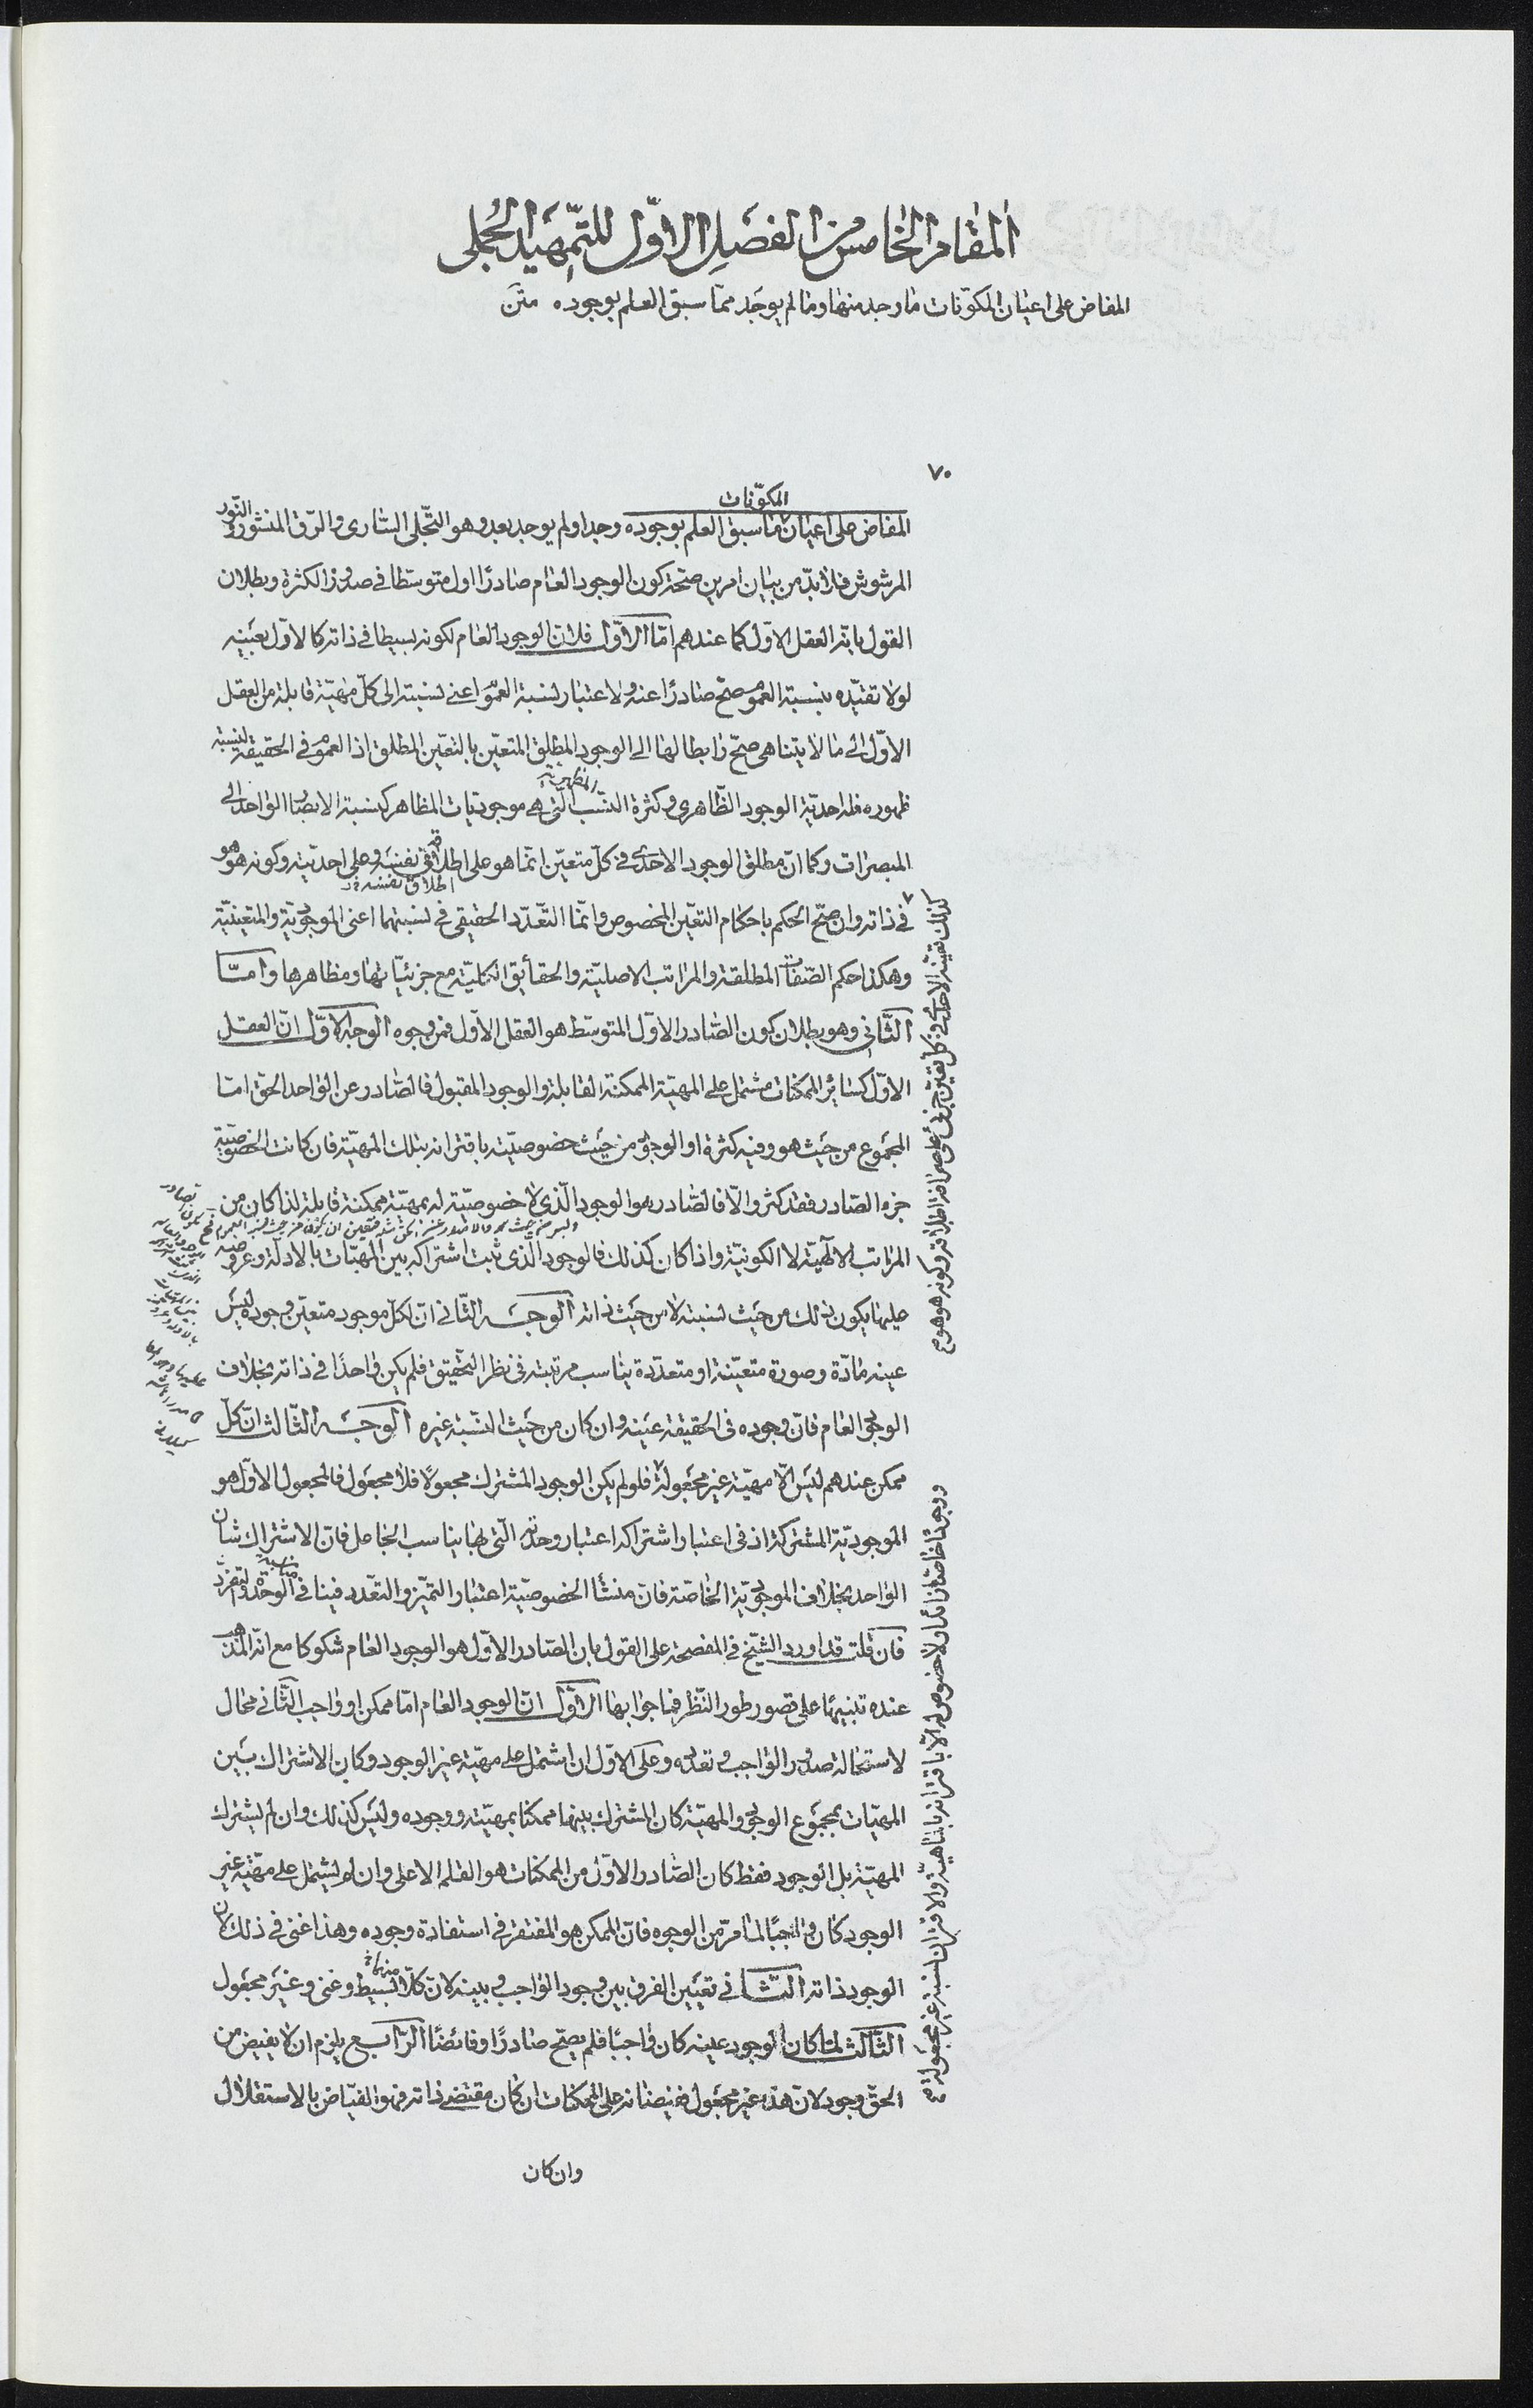 المقام الخامس من الفصل الاوّل للتّمهيد الجُملى
المفاض على اعيان المكوّنات ما وجد منها وما لم يوجد ممّا سبق العلم بوجوده متن
٧٠
المكوّنات
المفاض على اعيان ما سبق العلم بوجوده وجد او لم يوجد بعد وهو التّجلى السّارى والرّق المنشور والنّور
المرشوش فلا بدّ من بيان امرين صحّة كون الوجود العام صادرًا اول متوسّطا فى صدور الكثرة وبطلان
القول بانّه العقل الاوّل كما عندهم امّا الاوّل فلانّ الوجود العام لكونه بسيطا فى ذاته كالاوّل بعينه
لولا تقيّده بنسبة العموم صحّ صادرًا عنه ولاعتبار نسبة العموم اعنى نسبته الى كلّ مهيّة قابلة من العقل
الاوّل الى ما لا يتناهى صحّ رابطا لها الى الوجود المطلق المتعيّن بالتعيّن المطلق اذ العموم فى الحقيقة لنسبة
المظهرية
ظهوره فله احديّة الوجود الظّاهرى وكثرة النسب الّتى هى موجوديات المظاهر كنسبة الابصار الواحد الى
المبصرات وكما انّ مطلق الوجود الاحدى فى كلّ متعيّن انّما هو على اطلاقه فى نفسه وعلى احديّته وكونه هو هو
اطلاق نفسه
فى ذاته وان صحّ الحكم باحكام التعيّن المخصوص وانّما التّعدّد الحقيقى فى نسبتهما اعنى الموجوديّة والمتعيّنيّة
وهكذا حكم الصّفات المطلقة والمراتب الاصليّة والحقأيق الكليّة مع جزئيّاتها ومظاهرها وامّا
الثّانى وهو بطلان كون الصّادر الاوّل المتوسّط هو العقل الاوّل فمن وجوه الوجه الاوّل انّ العقل
الاوّل كسائر الممكنات مشتمل على المهيّة الممكنة القابلة والوجود المقبول فالصّادر عن الواحد الحقّ امّا
المجموع من حيث هو وفيه كثرة او الوجود من حيث خصوصيّته باقترانه بتلك المهيّة فان كانت الخصوصيّة
جزء الصّادر فقد كثر والّا فالصّادر هو الوجود الّذى لا خصوصيّة له بمهيّة ممكنة قابلة لذا كان من
المراتب الالهيّة لا الكونيّة واذا كان كذلك فالوجود الّذى ثبت اشتراكه بين المهيّات بالادلّة وعروضه
عليها يكون ذلك من حيث نسبته لا من حيث ذاته الوجه الثّانى انّ لكلّ موجود متعيّن وجوده ليس
عينه مادّة وصورة متعيّنة او متعدّدة يناسب مرتبته فى نظر التّحقيق فلم يكن واحدًا فى ذاته بخلاف
الوجود العام فانّ وجوده فى الحقيقة عينه وان كان من حيث النّسبة غيره الوجه الثّالث انّ كلّ
ممكن عندهم ليس الّا مهيّة غير مجعولة فلو لم يكن الوجود المشترك مجعولًا فلا مجعول فالمجعول الاوّل هو
الموجوديّة المشتركة اذ فى اعتبار اشتراكه اعتبار وحدته الّتى بها يناسب الجاعل فانّ الاشتراك شان
الواحد بخلاف الموجوديّة الخاصّة فانّ منشأ الخصوصيّة اعتبار التميّز والتّعدد فينافى الوحدة والتفرّد
فان قلت قد اورد الشّيخ فى المفصحة على القول بان الصّادر الاوّل هو الوجود العام شكوكا مع انّه المذهب
عنده تنبيهًا على قصور طور النّظر فما جوابها الاوّل انّ الوجود العام امّا ممكن او واجب الثّانى محال
لاستحالة صدور الواجب وتعدّده وعلى الاوّل ان اشتمل على مهيّة غير الوجود وكان الاشتراك بين
المهيّات بمجموع الوجود والمهيّة كان المشترك بينها ممكنًا بمهيّته ووجوده وليس كذلك وان لم يشترك
المهيّة بل الوجود فقط كان الصّادر الاوّل من الممكنات هو القلم الاعلى وان لم يشتمل على مهيّة غير
الوجود كان واجبًا لما مرّ من الوجوه فانّ الممكن هو المفتقر فى استفادة وجوده وهذا غنى فى ذلك لان
الوجود ذاته الثّانى تعيّن الفرق بين وجود الواجب وبينه لانّ كلّا منهما بسيط وغنى وغير مجعول
الثّالث لمّا كان الوجود عينه كان واجبًا فلم يصحّ صادرًا وفائضًا الرّابع يلزم ان لا يفيض من
الحقّ وجود لانّ هذا غير مجعول ففيضانه على الممكنات ان كان مقتضى ذاته فهو الفيّاض بالاستقلال
وان كان
كذلك تعيّنه الاحدى فى كلّ تعيّن جزئى على صرافة اطلاقه وكونه هو هو
ووجودًا خاصًا زائدًا ولا خصوص له الّا باقترانه بالماهيّة والاقتران نسبة غير مجعولة